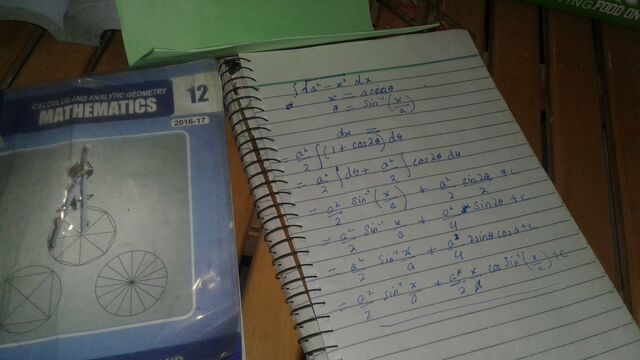 CALCULUS AND ANALYTIC GEOMETRY
MATHEMATICS 12
2016-17
FOOD
∫√a² − x² dx
x = a sinθ
θ = sin⁻¹(x/a)
dx =
= a²/2 ∫(1 + cos2θ) dθ
= a²/2 ∫dθ + a²/2 ∫cos2θ dθ
= a²/2 sin⁻¹(x/a) + a²/2 sin2θ/2 + c
= a²/2 sin⁻¹ x/a + a²/4 sin2θ + c
= a²/2 sin⁻¹ x/a + a²/4 2sinθ cosθ + c
= a²/2 sin⁻¹ x/a + a²/2 x cos sin⁻¹(x/a) + c